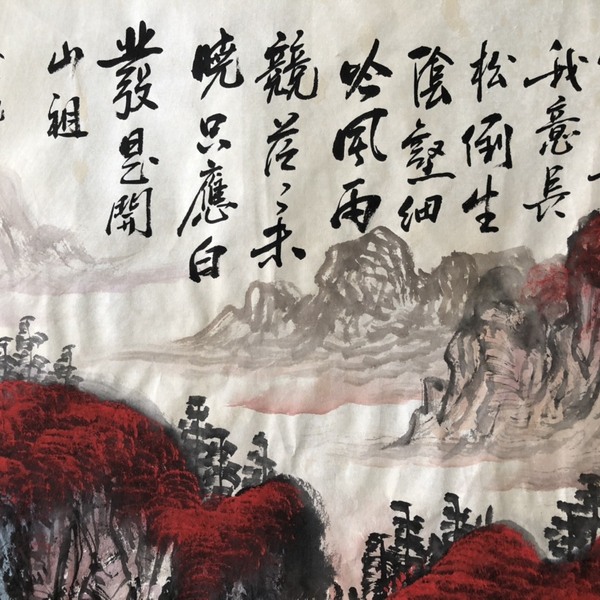 我意長
松倒生
陰壑細
吟風雨
競茫〻未
曉只應白
發是開
山祖